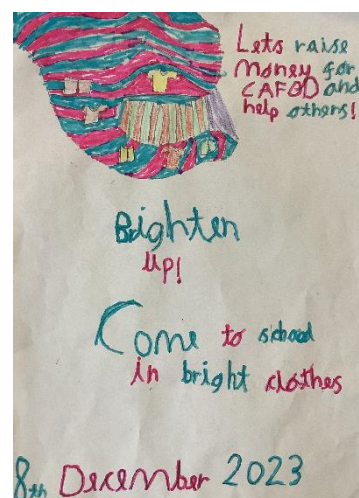 Lets raise
Money for
CAFOD and
help others!
Brighten
up!
Come to school
in bright clothes
8th December 2023